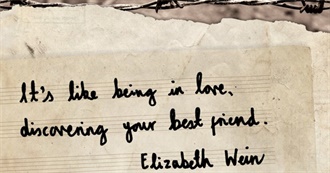 It's like being in love,
discovering your best friend.
Elizabeth Wein